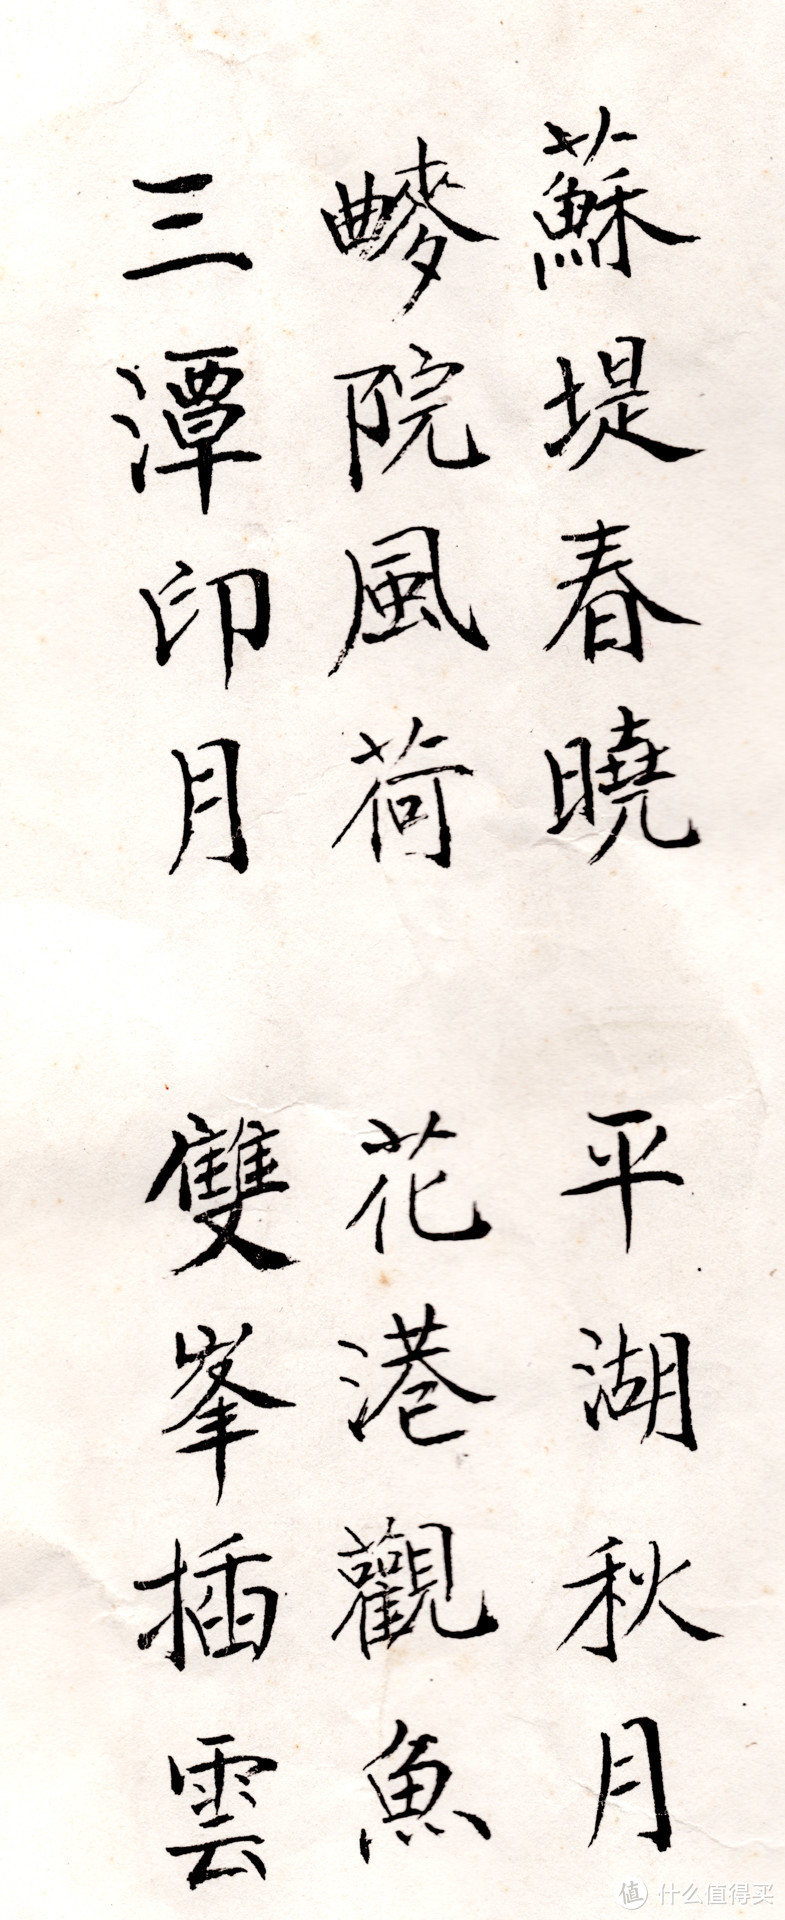 蘇堤春曉 平湖秋月
麯院風荷 花港觀魚
三潭印月 雙峯插雲
值 什么值得买